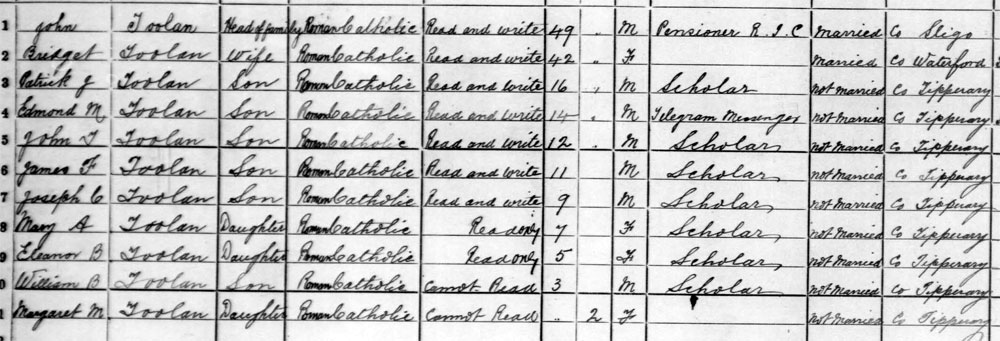 1 John Toolan Head of family Roman Catholic Read and write 49 " M Pensioner R.I.C Married Co Sligo
2 Bridget Toolan Wife Roman Catholic Read and write 42 " F Married Co Waterford
3 Patrick J Toolan Son Roman Catholic Read and write 16 " M Scholar not Married Co Tipperary
4 Edmond M Toolan Son Roman Catholic Read and write 14 " M Telegram Messenger not Married Co Tipperary
5 John T Toolan Son Roman Catholic Read and write 12 " M Scholar not Married Co Tipperary
6 James F Toolan Son Roman Catholic Read and write 11 M Scholar not Married Co Tipperary
7 Joseph C Toolan Son Roman Catholic Read and write 9 M Scholar not Married Co Tipperary
8 Mary A Toolan Daughter Roman Catholic Read only 7 F Scholar not Married Co Tipperary
9 Eleanor B Toolan Daughter Roman Catholic Read only 5 F Scholar not Married Co Tipperary
0 William B Toolan Son Roman Catholic Cannot Read 3 M Scholar not Married Co Tipperary
1 Margaret M Toolan Daughter Roman Catholic Cannot Read " 2 F not Married Co Tipperary